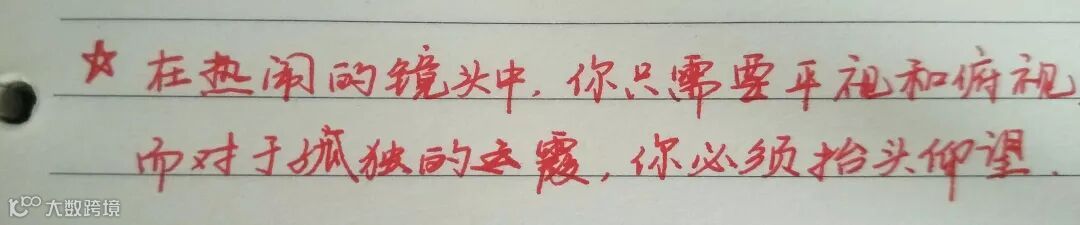 ☆ 在热闹的镜头中，你只需要平视和俯视，
而对于孤独的云霞，你必须抬头仰望.
大数跨境